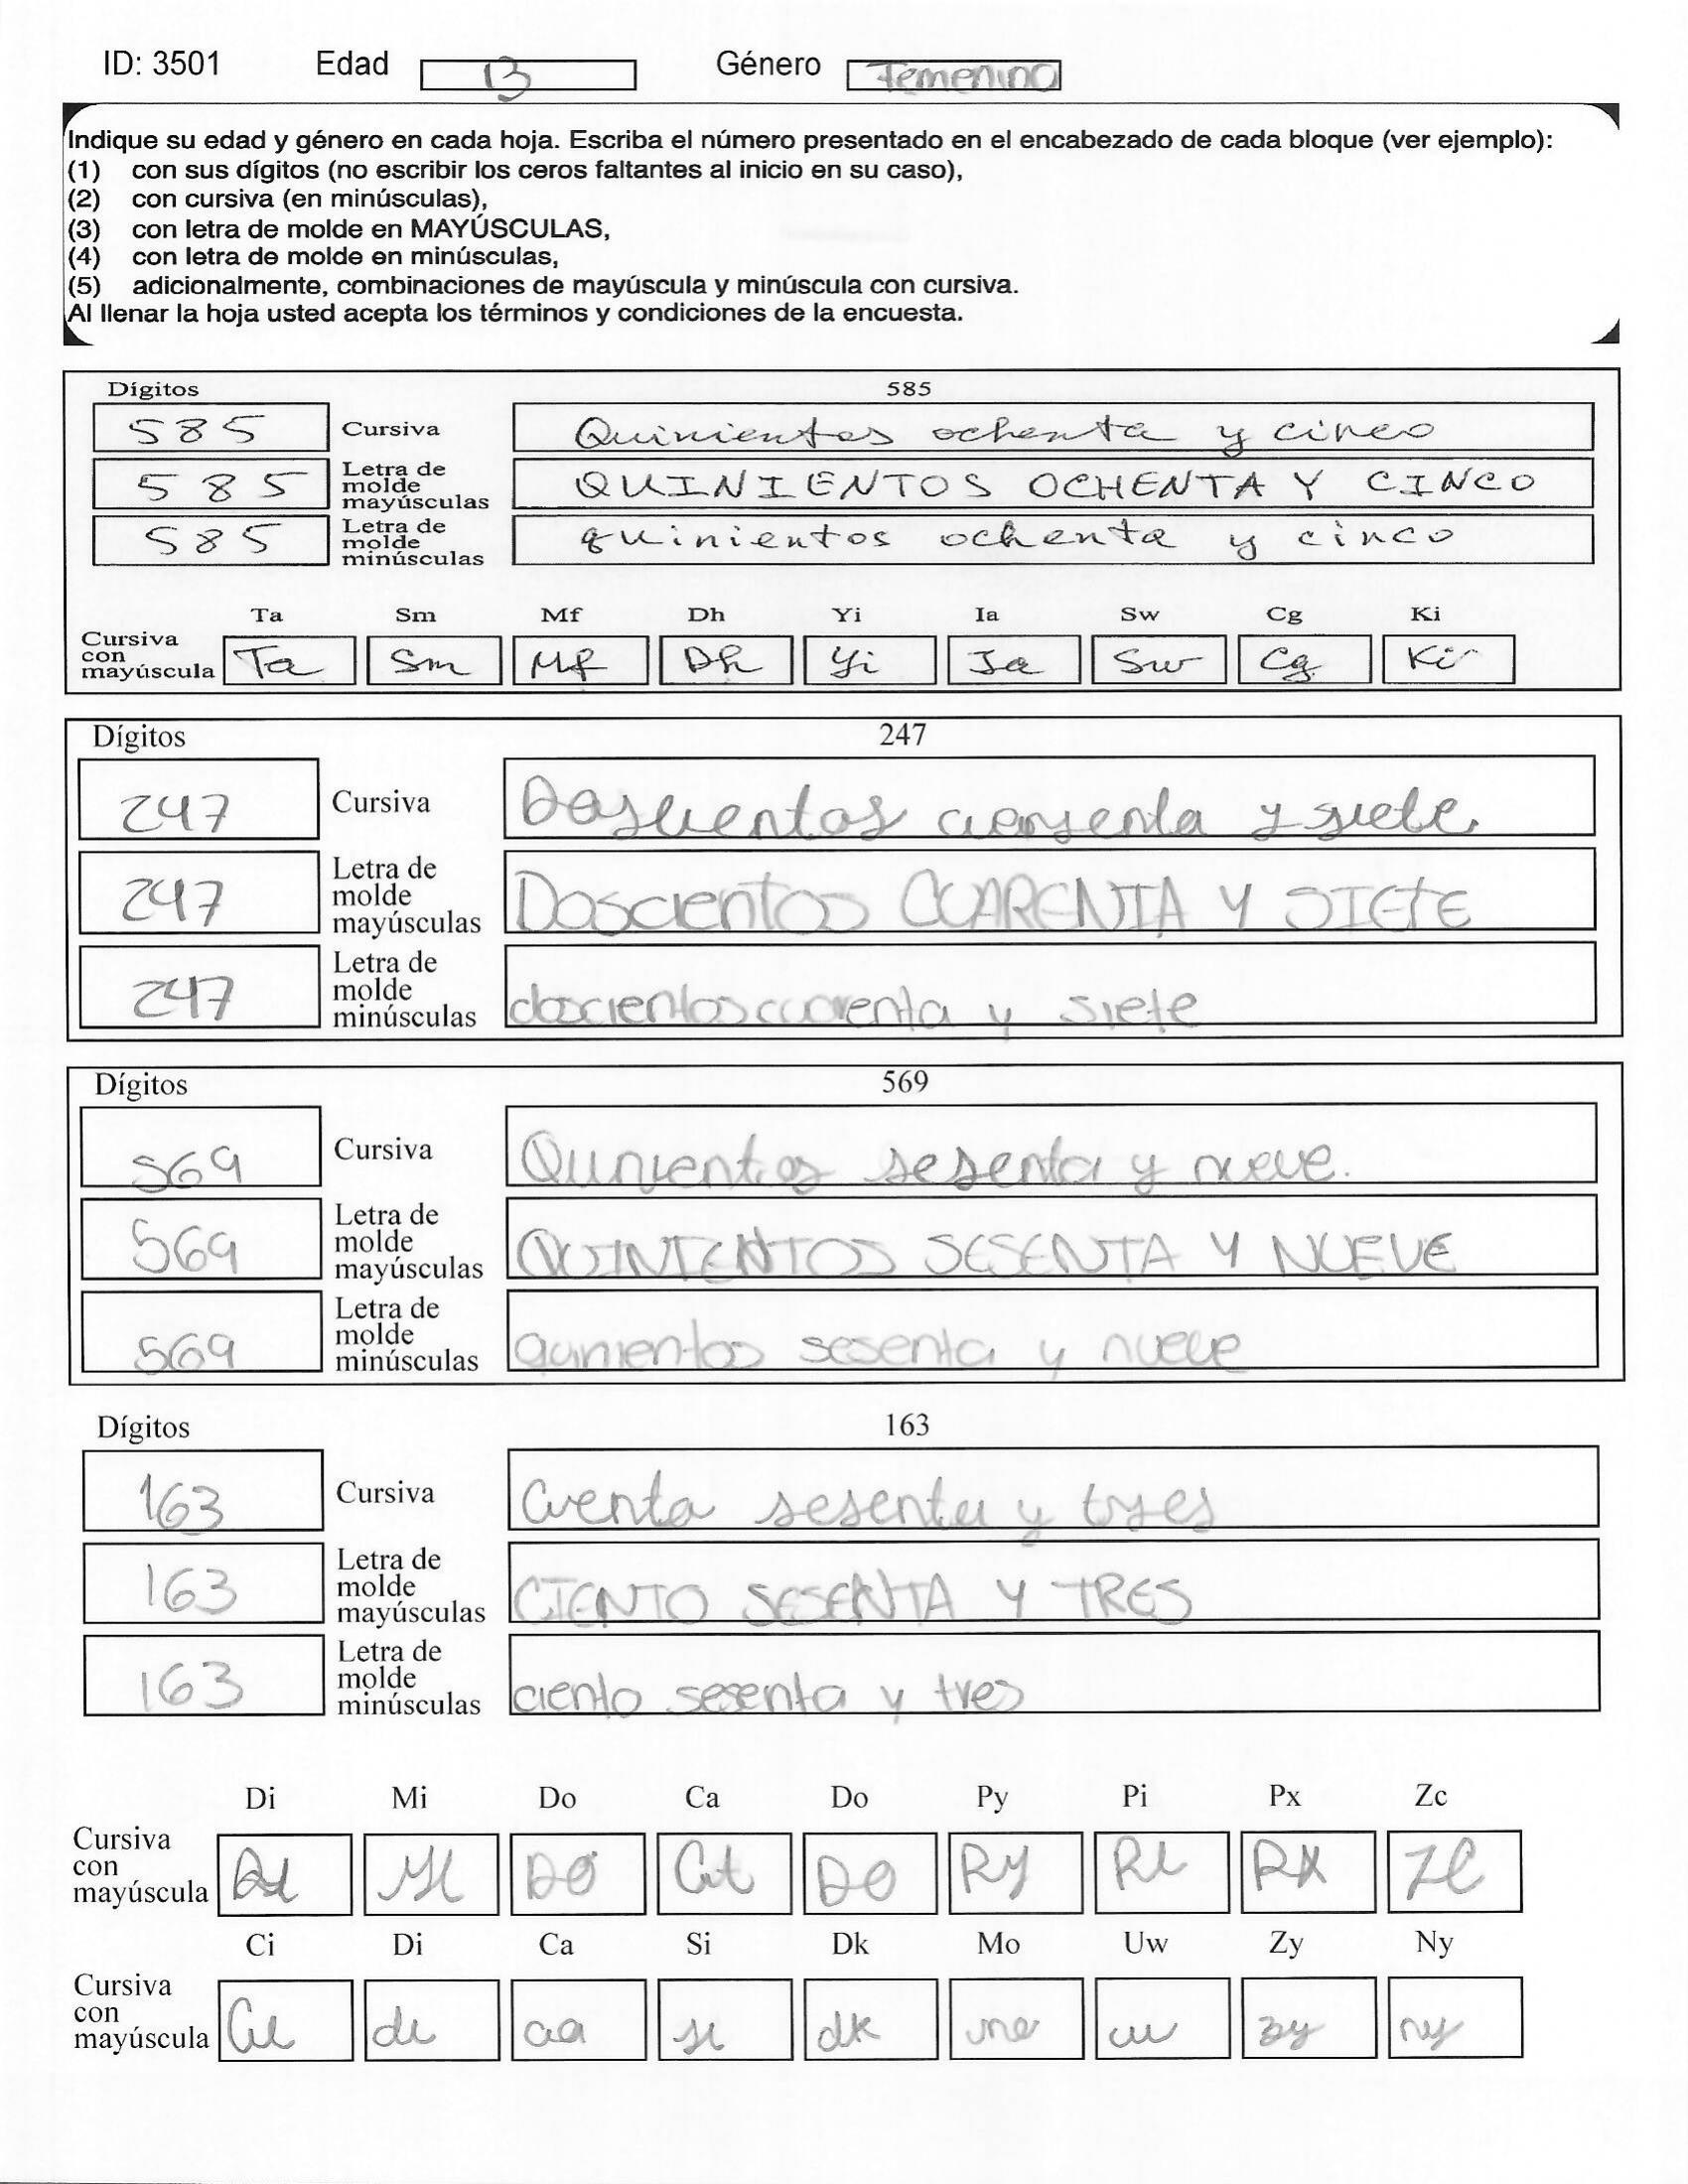 ID: 3501 Edad 13 Género Femenino
Indique su edad y género en cada hoja. Escriba el número presentado en el encabezado de cada bloque (ver ejemplo):
(1) con sus dígitos (no escribir los ceros faltantes al inicio en su caso),
(2) con cursiva (en minúsculas),
(3) con letra de molde en MAYÚSCULAS,
(4) con letra de molde en minúsculas,
(5) adicionalmente, combinaciones de mayúscula y minúscula con cursiva.
Al llenar la hoja usted acepta los términos y condiciones de la encuesta.
Dígitos 585
585 Cursiva Quinientos ochenta y cinco
585 Letra de molde mayúsculas QUINIENTOS OCHENTA Y CINCO
585 Letra de molde minúsculas quinientos ochenta y cinco
Ta Sm Mf Dh Yi Ia Sw Cg Ki
Cursiva con mayúscula Ta Sm Mf Dh Yi Ia Sw Cg Ki
Dígitos 247
247 Cursiva Doscientos y siete
247 Letra de molde mayúsculas Doscientos CUARENTA Y SIETE
247 Letra de molde minúsculas doscientos cuarenta y siete
Dígitos 569
569 Cursiva Quinientos sesenta y nueve.
569 Letra de molde mayúsculas QUINIENTOS SESENTA Y NUEVE
569 Letra de molde minúsculas sesenta y nueve
Dígitos 163
163 Cursiva sesenta y tres
163 Letra de molde mayúsculas CIENTO SESENTA Y TRES
163 Letra de molde minúsculas ciento sesenta y tres
Di Mi Do Ca Do Py Pi Px Zc
Cursiva con mayúscula Di Mi Do Ca Do Py Pi Px Zc
Ci Di Ca Si Dk Mo Uw Zy Ny
Cursiva con mayúscula Ci di ca si dk mo uw zy ny